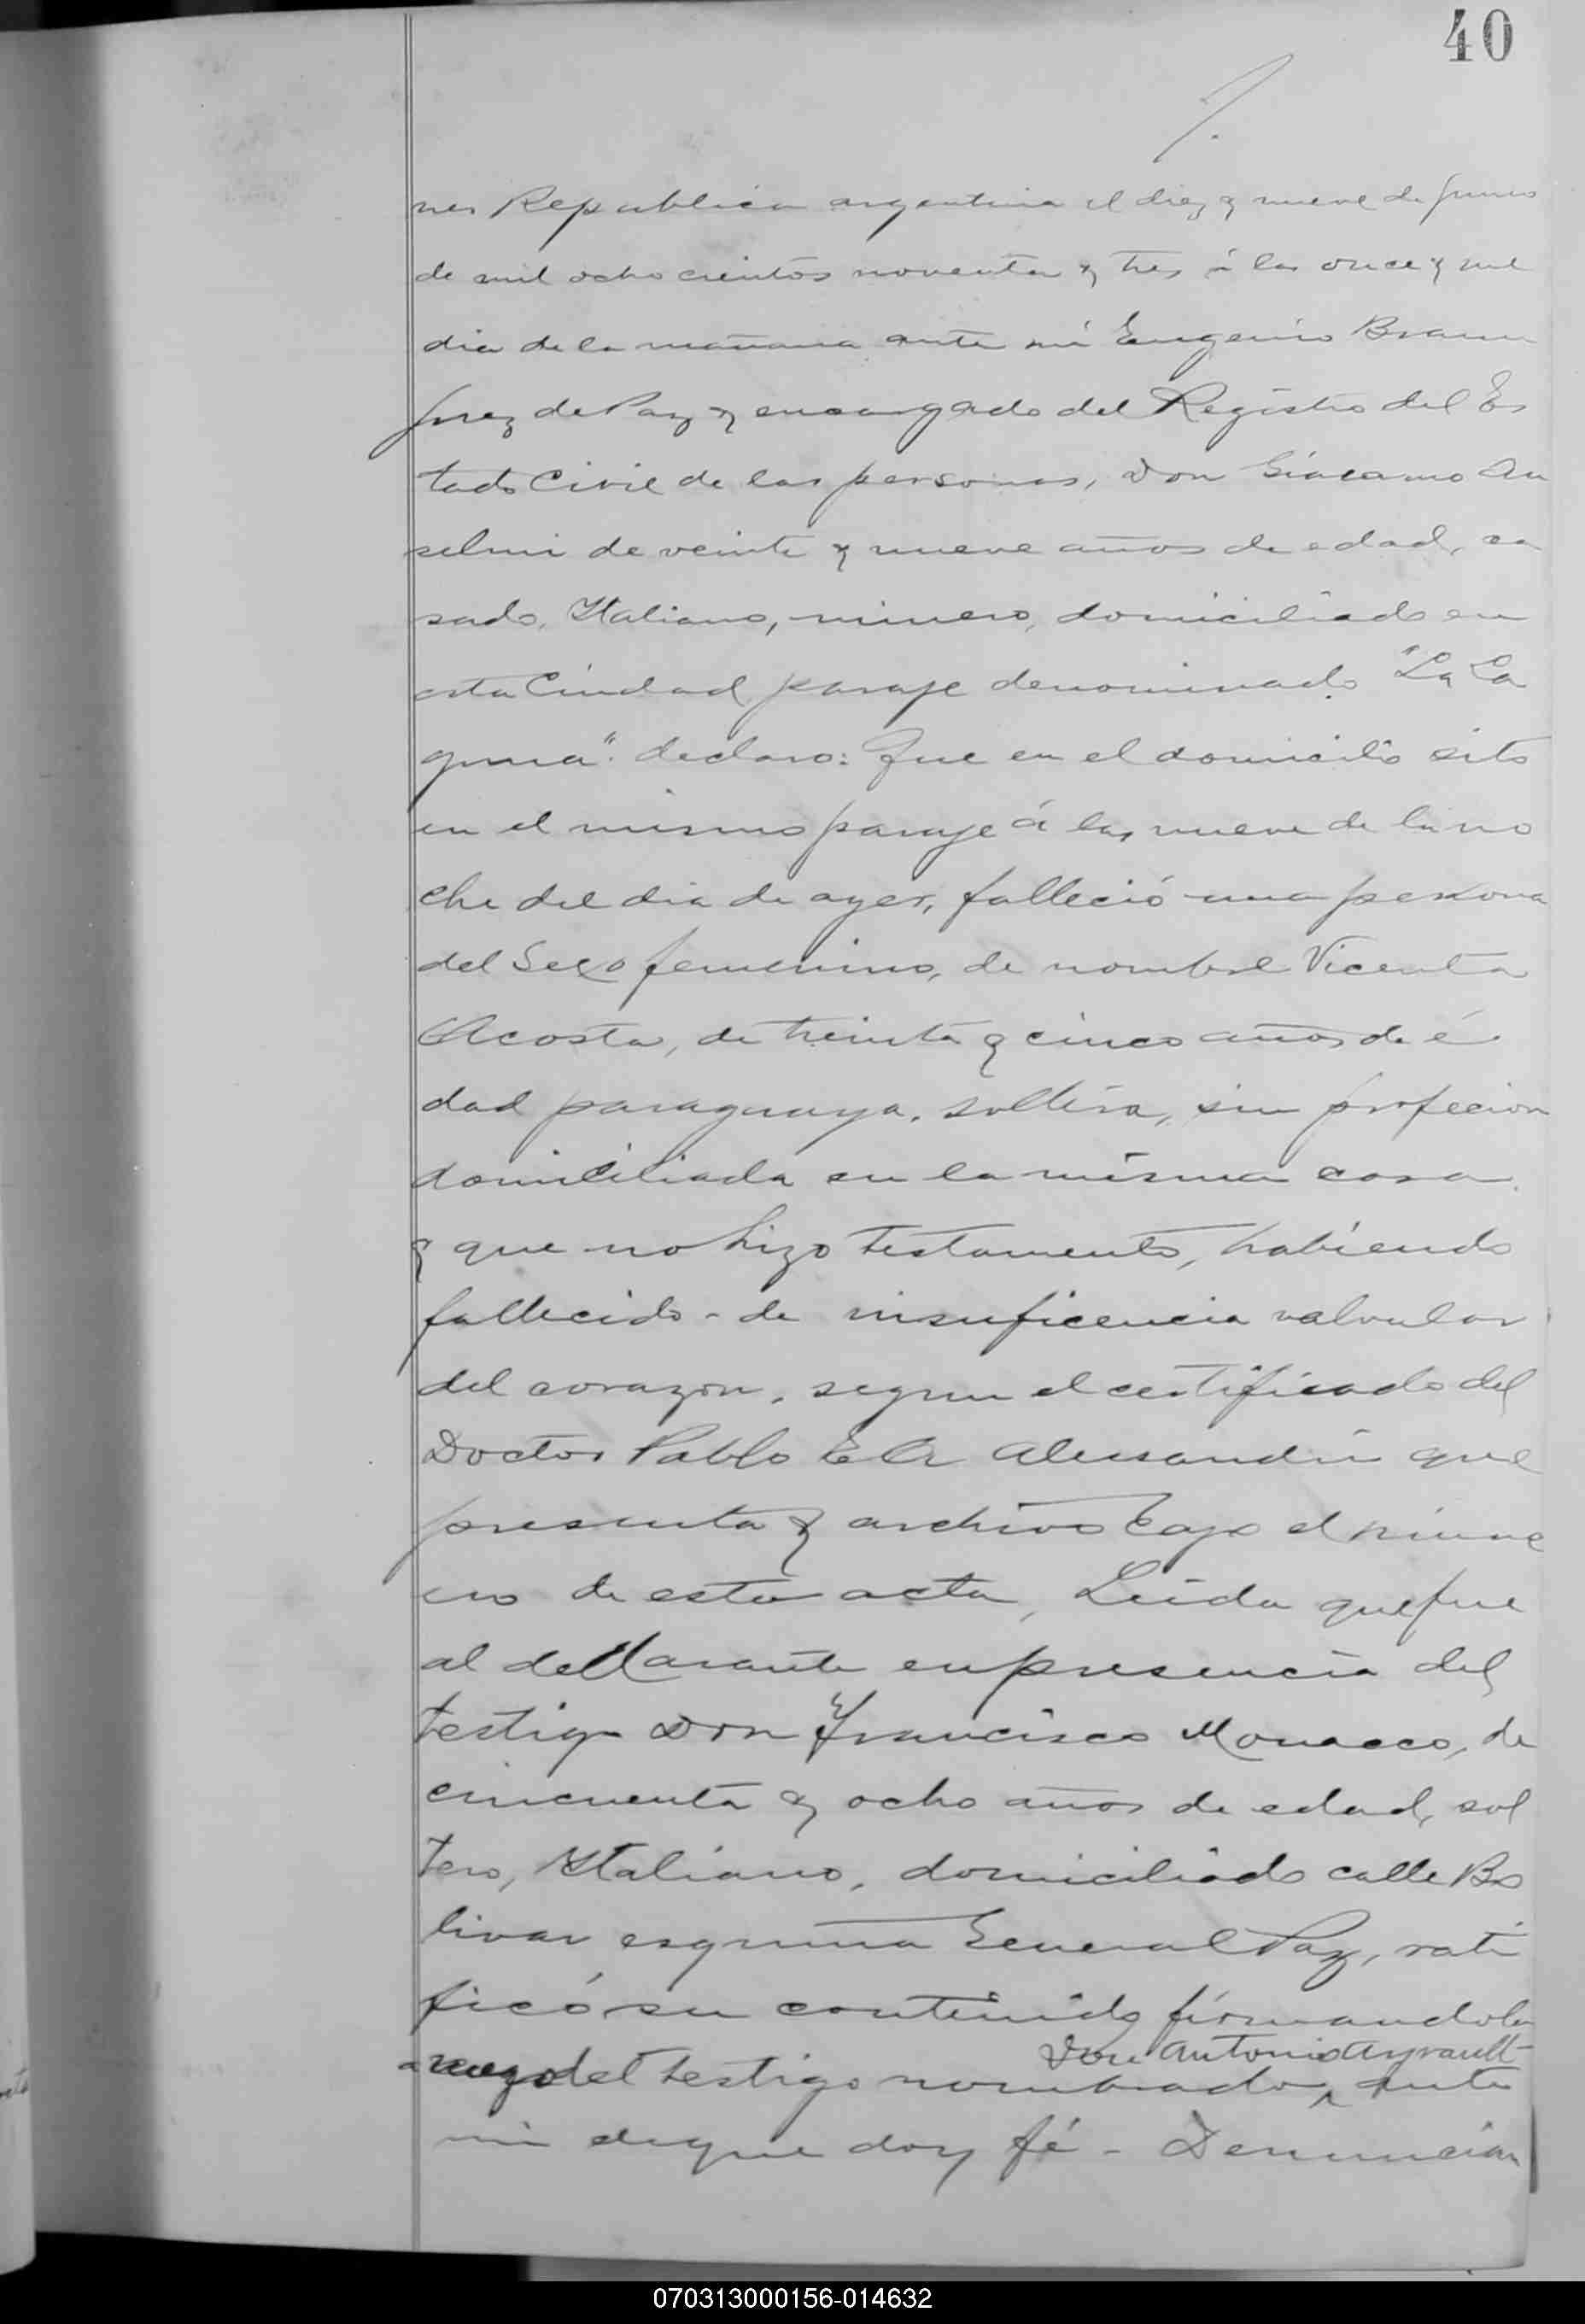 40
nes Republica argentina el diez y nueve de Junio
de mil ocho cientos noventa y tres á las once y me
dia de la mañana ante mi Eugenio Braun
Juez de Paz y encargado del Registro del Es
tado Civil de las personas, Don Giacamo An
selmi de veinte y nueve años de edad, ca
sado, Italiano, minero, domiciliado en
esta Ciudad paraje denominado "La La
guna". declaro: Que en el domicilio sito
en el mismo paraje á las nueve de la no
che del dia de ayer, falleció una persona
del Sexo femenino, de nombre Vicenta
Acosta, de treinta y cinco años de é
dad paraguaya, soltera, sin profecion
domiciliada en la misma casa
y que no hizo testamento, habiendo
fallecido - de insuficencia valvular
del corazon, segun el certificado del
Doctor Pablo Alessandri que
presenta y archivo bajo el núme
ro de esta acta, Leida que fue
al declarante en presencia del
testigo Don Francisco Monacco, de
cincuenta y ocho años de edad, sol
tero, Italiano, domiciliado calle Bo
livar esquina General Paz, rati
ficó su contenido firmandola
Don Antonio Ayrault
a ruego del testigo nombrado ante
mi de que doy fé - Denuncian
070313000156-014632